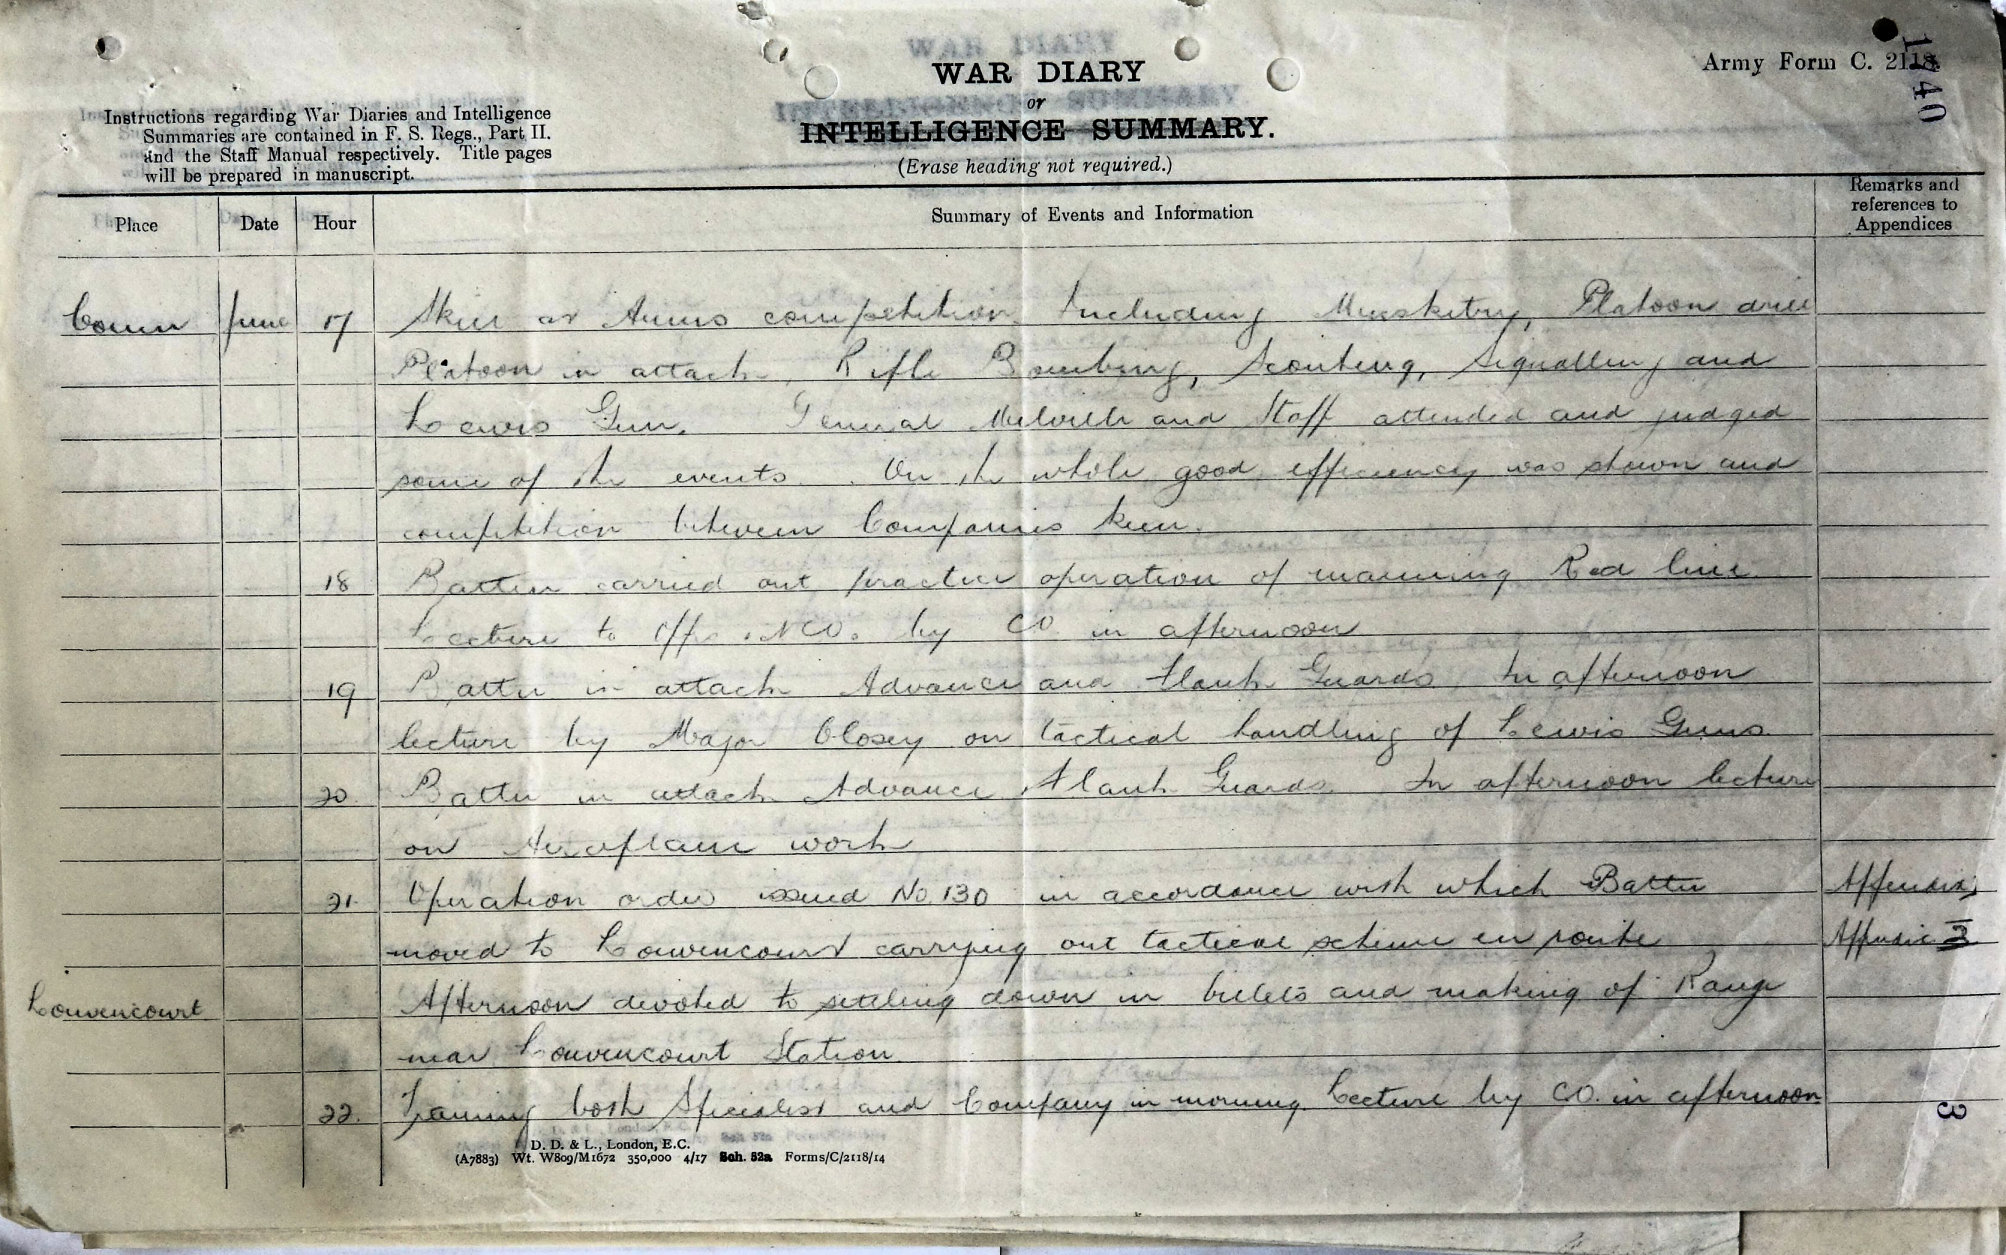 WAR DIARY
or
INTELLIGENCE SUMMARY.
(Erase heading not required.)
Army Form C. 2118
1140
Instructions regarding War Diaries and Intelligence
Summaries are contained in F. S. Regs., Part II.
and the Staff Manual respectively. Title pages
will be prepared in manuscript.
Place Date Hour Summary of Events and Information Remarks and references to Appendices
Couin June 17 Skill at Arms competition Including Musketry, Platoon drill
Platoon in attack, Rifle Bombing, Scouting, Signalling and
Lewis Gun. General Melvill and Staff attended and judged
some of the events. On the whole good efficiency was shown and
competition between Companies keen.
18 Battn carried out practice operation of manning Red line
Lecture to Offs. NCO. by CO in afternoon
19 Battn in attack Advance and Flank Guards In afternoon
lecture by Major on tactical handling of Lewis Guns.
20 Battn in attack Advance Flank Guards. In afternoon lecture
on Aeroplane work
21. Operation order issued No. 130 in accordance with which Battn Appendix
moved to Louvencourt carrying out tactical scheme en route Appendix 2
Louvencourt Afternoon devoted to settling down in billets and making of Range
near Louvencourt Station.
22. Training both Specialist and Company in morning. Lecture by CO. in afternoon
3
D. D. & L., London, E.C.
(A7883) Wt. W809/M1672 350,000 4/17 Sch. 52a Forms/C/2118/14